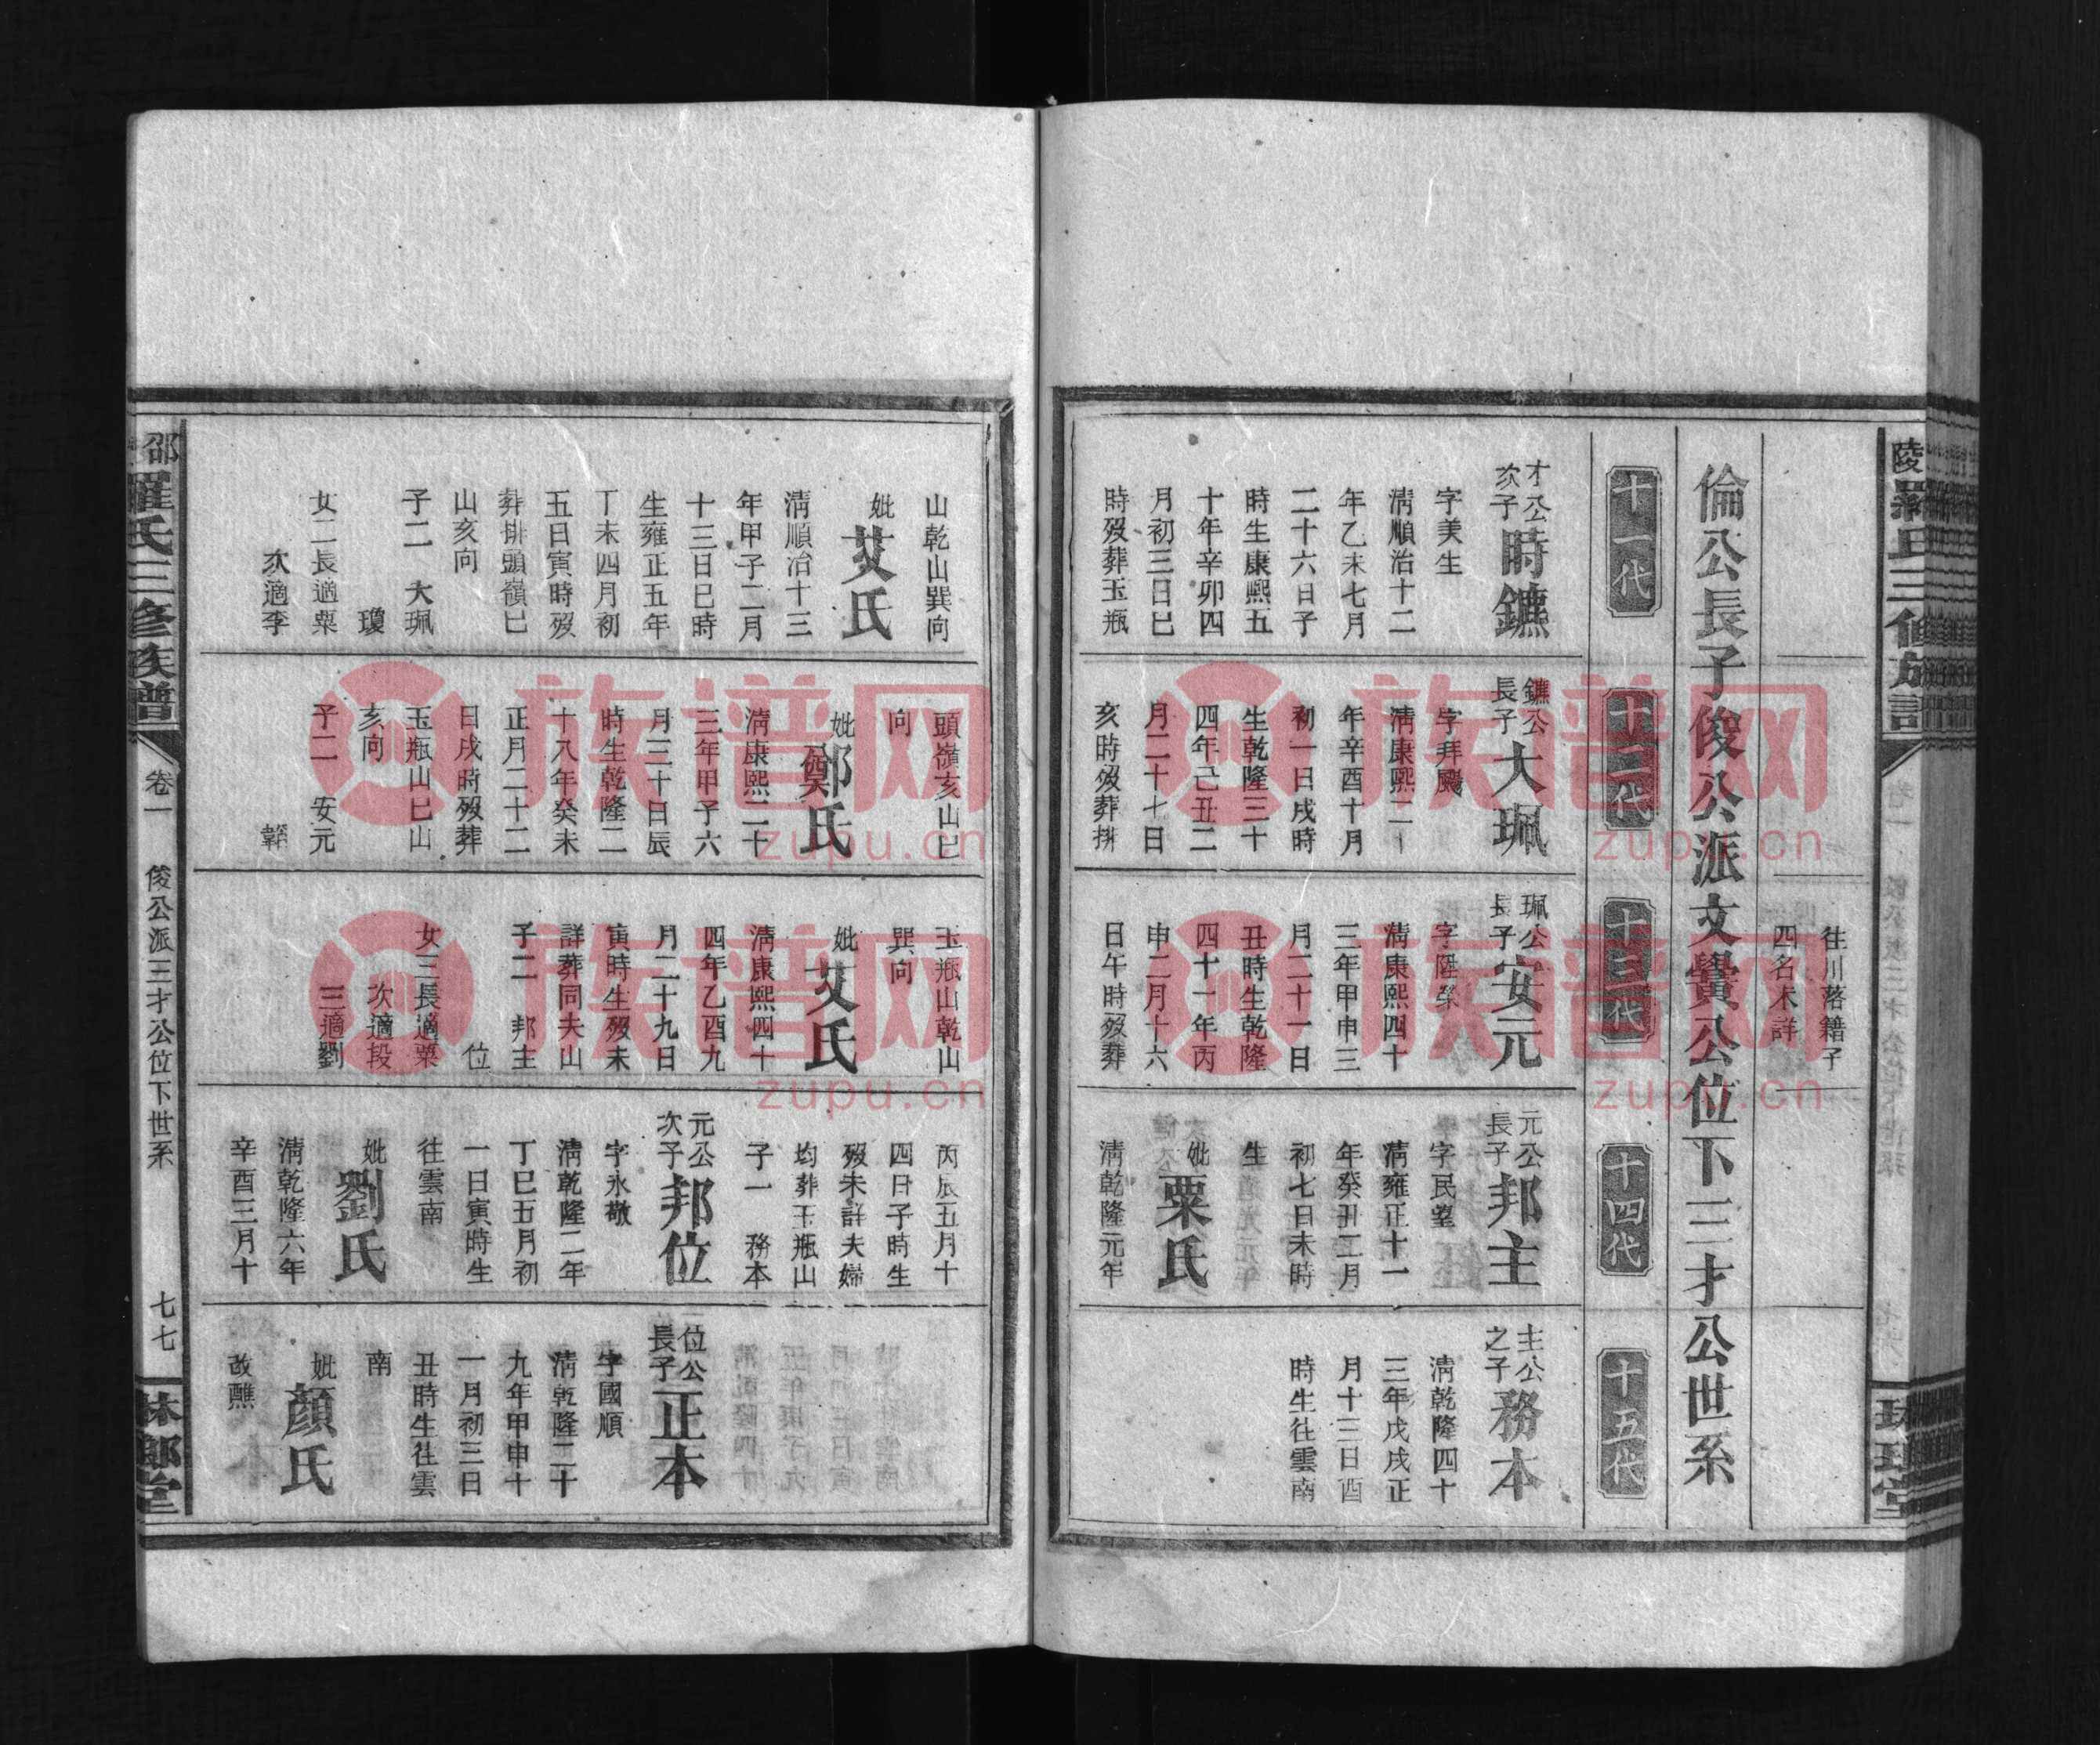 往川落籍子
四名未詳
倫公長子俊公派文黌公位下三才公世系
十一代
十二代
十三代
十四代
十五代
才公
次子
時鑣
字美生
清順治十二
年乙未七月
二十六日子
時生康熙五
十年辛卯四
月初三日巳
時歿葬玉瓶
鑣公
長子
大珮
字拜颺
清康熙二十
年辛酉十月
初一日戌時
生乾隆三十
四年己丑二
月二十七日
亥時歿葬排
珮公
長子
安元
字陞榮
清康熙四十
三年甲申三
月二十一日
丑時生乾隆
四十一年丙
申二月十六
日午時歿葬
元公
長子
邦主
字民望
清雍正十一
年癸丑二月
初七日未時
生
妣
粟氏
清乾隆元年
主公
之子
務本
清乾隆四十
三年戊戌正
月十三日酉
時生往雲南
山乾山巽向
妣
艾氏
清順治十三
年甲子二月
十三日巳時
生雍正五年
丁未四月初
五日寅時歿
葬排頭嶺巳
山亥向
子二 大珮
瓊
女二長適粟
次適李
頭嶺亥山巳
向
妣
鄭氏
清康熙二十
三年甲子六
月三十日辰
時生乾隆二
十八年癸未
正月二十二
日戌時歿葬
玉瓶山巳山
亥向
子二 安元
玉瓶山乾山
巽向
妣
艾氏
清康熙四十
四年乙酉九
月二十九日
寅時生歿未
詳葬同夫山
子二 邦主
位
女三長適粟
次適段
三適劉
丙辰五月十
四日子時生
歿未詳夫婦
均葬玉瓶山
子一 務本
元公
次子
邦位
字永敬
清乾隆二年
丁巳五月初
一日寅時生
往雲南
妣
劉氏
清乾隆六年
辛酉三月十
位公
長子
正本
字國順
清乾隆二十
九年甲申十
一月初三日
丑時生往雲
南
妣
顏氏
改醮
邵
羅氏三修族譜
卷一
俊公派三才公位下世系
七七
族谱网
zupu.cn
族谱网
zupu.cn
族谱网
zupu.cn
族谱网
zupu.cn